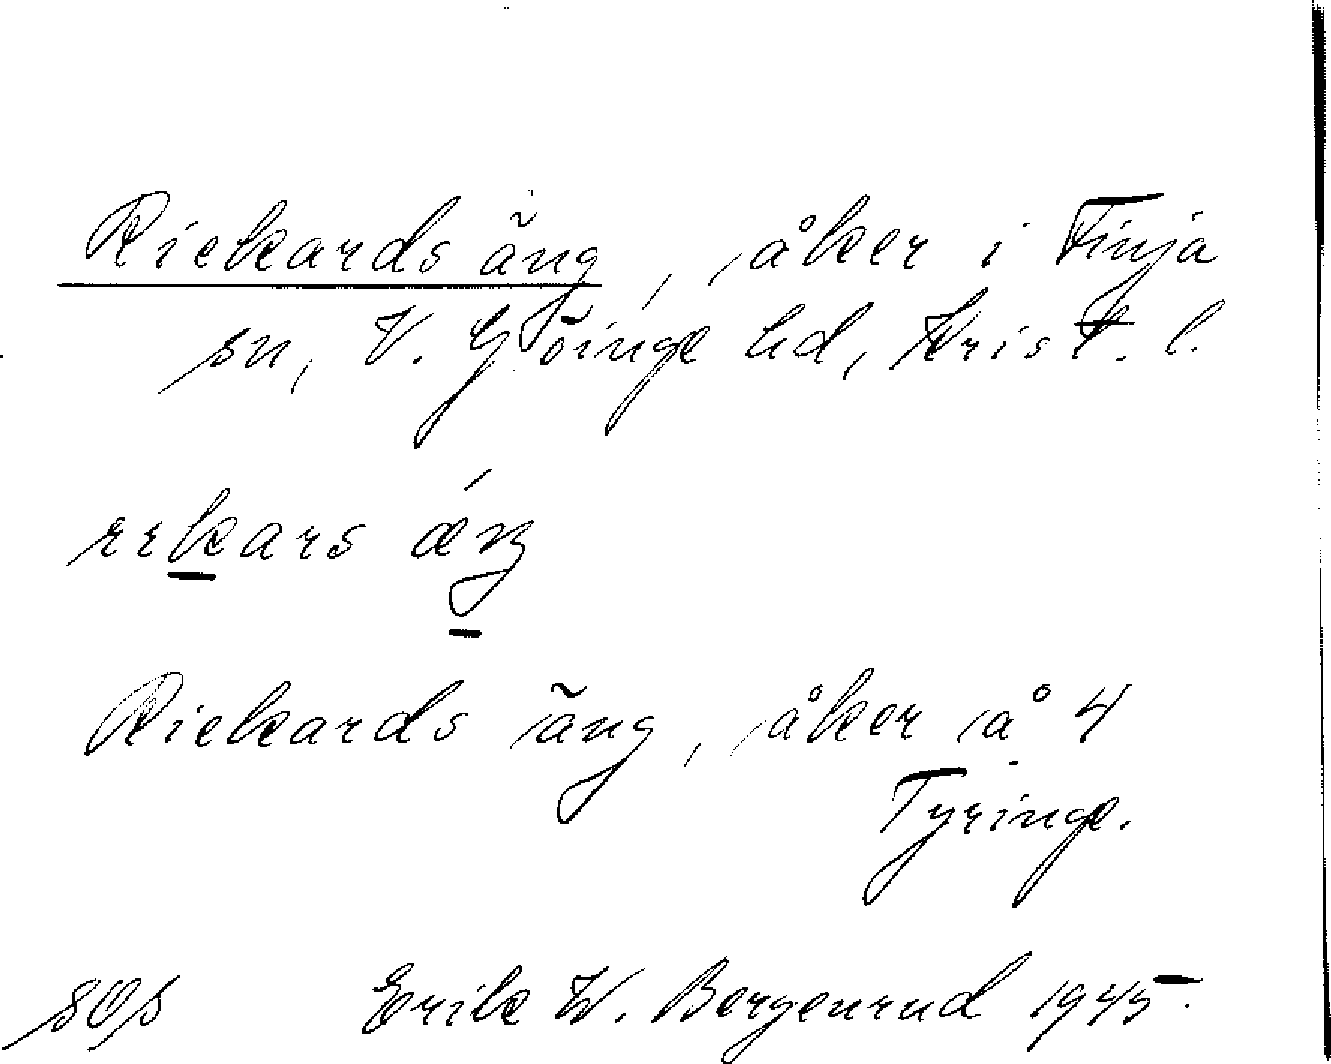 Rickards äng, åker i Finja
sn, V. Göinge hd, Krist. l.
rekars ǽŋ
Rickards äng, åker å 4
Tyringe.
Erik W. Bergenrud 1945.